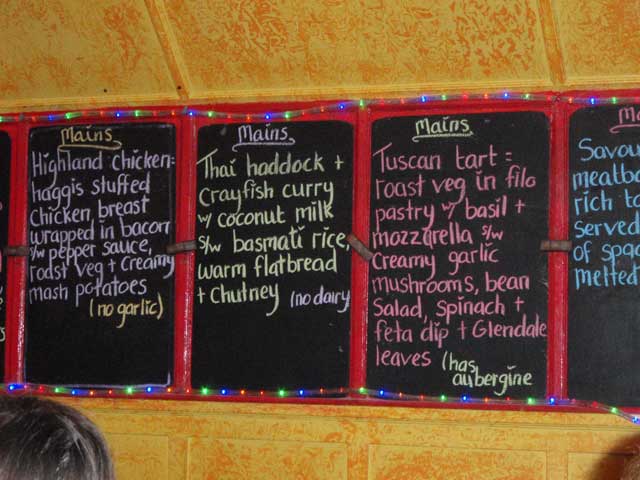 Mains
Highland chicken=
haggis stuffed
chicken breast
wrapped in bacon
s/w pepper sauce,
roast veg + creamy
mash potatoes
(no garlic)
Mains
Thai haddock +
Crayfish curry
w/ coconut milk
s/w basmati rice,
warm flatbread
+ Chutney (no dairy)
Mains
Tuscan tart =
roast veg in filo
pastry w/ basil +
mozzarella s/w
creamy garlic
mushrooms, bean
salad, spinach +
feta dip + Glendale
leaves (has
aubergine
Savou
meatba
rich to
served
of spag
melted